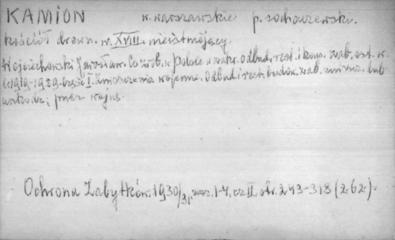 KAMION w. warszawskie p. sochaczewski.
Kościół drewn. w. XVIII. nieistniejący.
Wojciechowski Jarosław. Co zrob. w Polsce w zakr. odbud. rest. i kons. zab. szt. w
l. 1919-1929. Część I. Zniszczenia wojenne. Odbud. i rest. budow. zab. zniszcz. lub
uszkodz. przez wojnę.
Ochrona Zabytków. 1930/31, zesz. 1-4, cz. II. str. 243-318 (262).